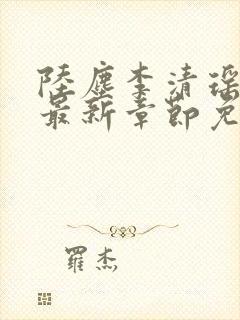 陸塵李清瑶
最新章節免
羅杰